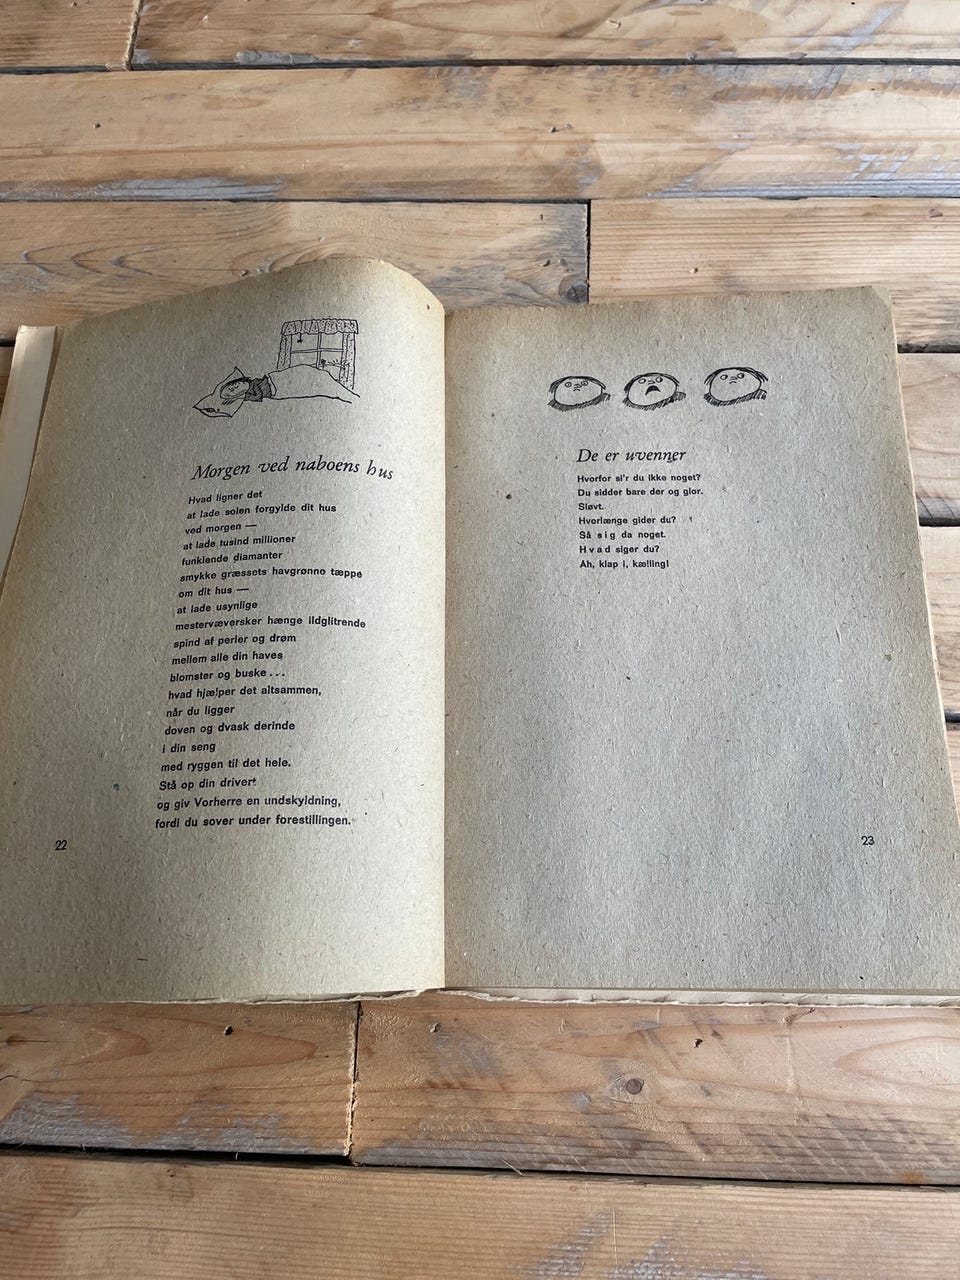 Morgen ved naboens hus
Hvad ligner det
at lade solen forgylde dit hus
ved morgen —
at lade tusind millioner
funklende diamanter
smykke græssets havgrønne tæppe
om dit hus —
at lade usynlige
mestervæversker hænge ildglitrende
spind af perler og drøm
mellem alle din haves
blomster og buske ...
hvad hjælper det altsammen,
når du ligger
doven og dvask derinde
i din seng
med ryggen til det hele.
Stå op din drivert
og giv Vorherre en undskyldning,
fordi du sover under forestillingen.
22
De er uvenner
Hvorfor si'r du ikke noget?
Du sidder bare der og glor.
Sløvt.
Hvorlænge gider du?
Så s i g da noget.
H v a d siger du?
Åh, klap i, kælling!
23